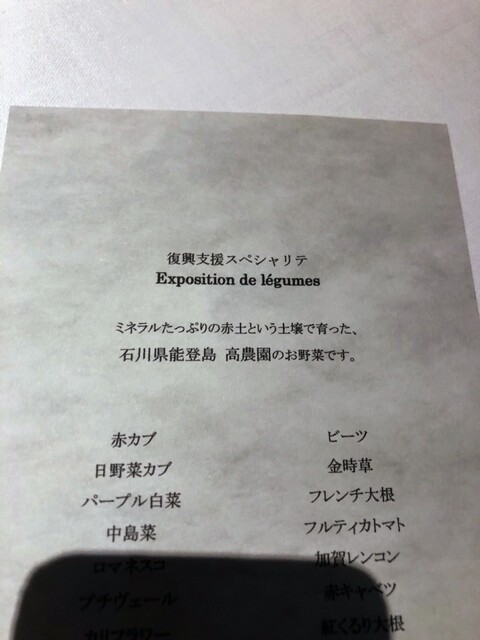 復興支援スペシャリテ
Exposition de légumes
ミネラルたっぷりの赤土という土壌で育った、
石川県能登島 高農園のお野菜です。
赤カブ ビーツ
日野菜カブ 金時草
パープル白菜 フレンチ大根
中島菜 フルティカトマト
ロマネスコ 加賀レンコン
プチヴェール 赤キャベツ
カリフラワー 紅くるり大根